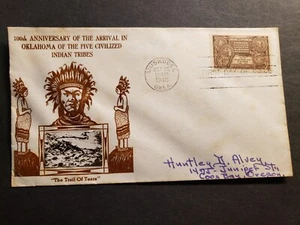 100th ANNIVERSARY OF THE ARRIVAL IN
OKLAHOMA OF THE FIVE CIVILIZED
INDIAN TRIBES
MUSKOGEE
OCT 15
1948
OKLA.
"The Trail Of Tears"
Huntley A. Alvey
1495 Juniper St,
Coos Bay, Oregon.